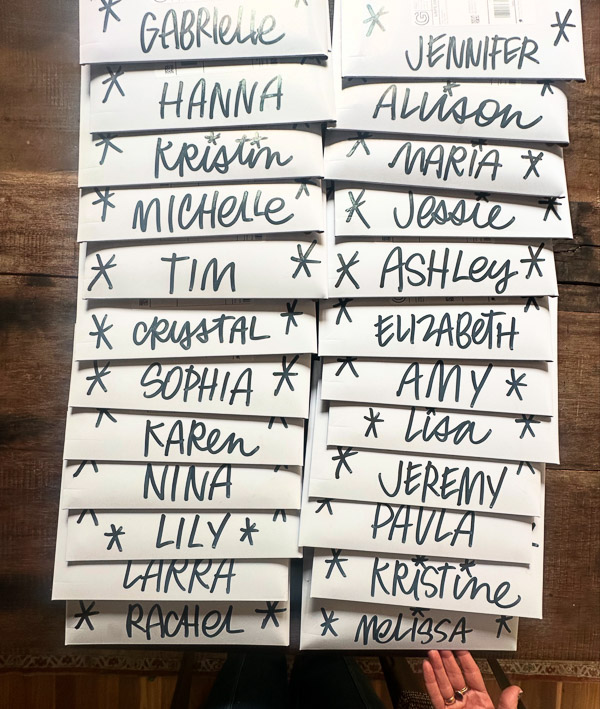 GABRIELLE
HANNA
KRISTIN
MICHELLE
TIM
CRYSTAL
SOPHIA
KAREN
NINA
LILY
LARRA
RACHEL
JENNIFER
ALLISON
MARIA
Jessie
ASHLEY
ELIZABETH
AMY
Lisa
JEREMY
PAULA
KRISTINE
MELISSA